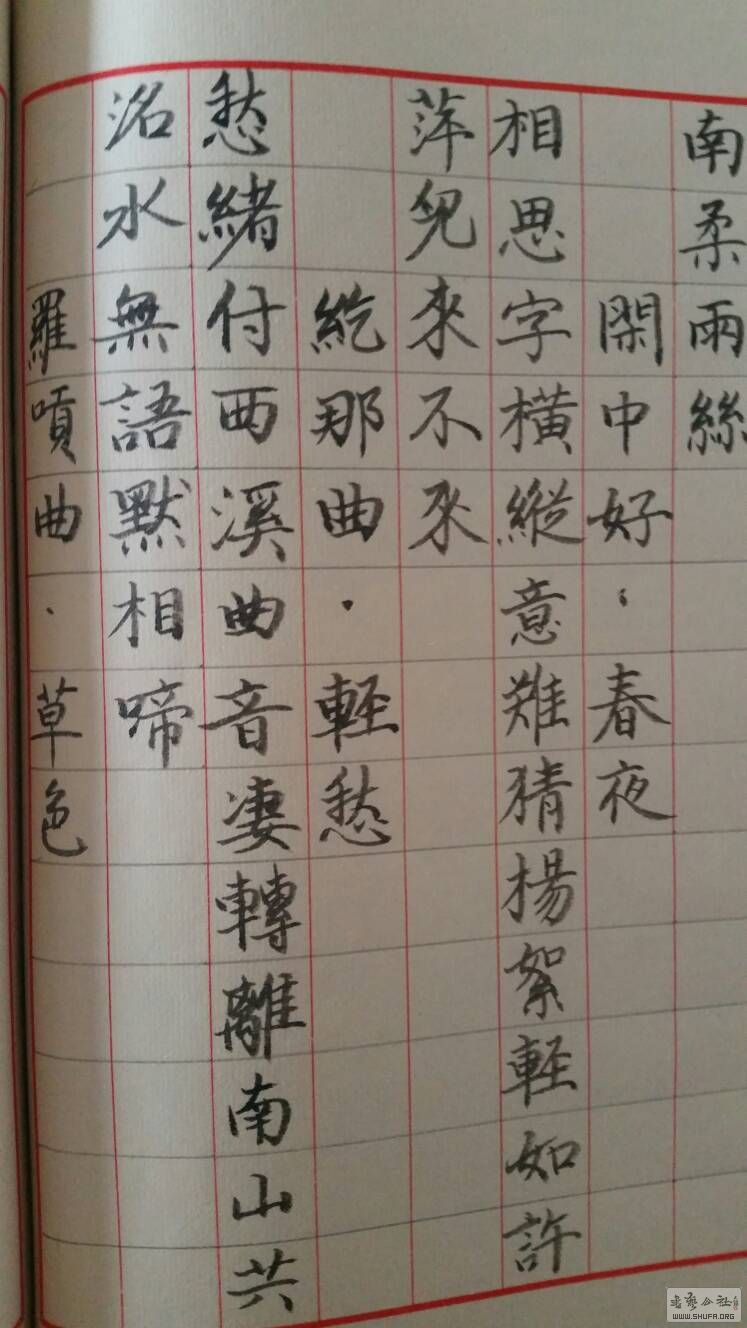 南柔兩絲
閑中好：春夜
相思字橫縱意難猜楊絮輕如許
萍兒來不來
紇那曲·輕愁
愁緒付西溪曲音凄轉離南山共
洺水無語默相啼
羅嗊曲·草色
WWW.SHUFA.ORG